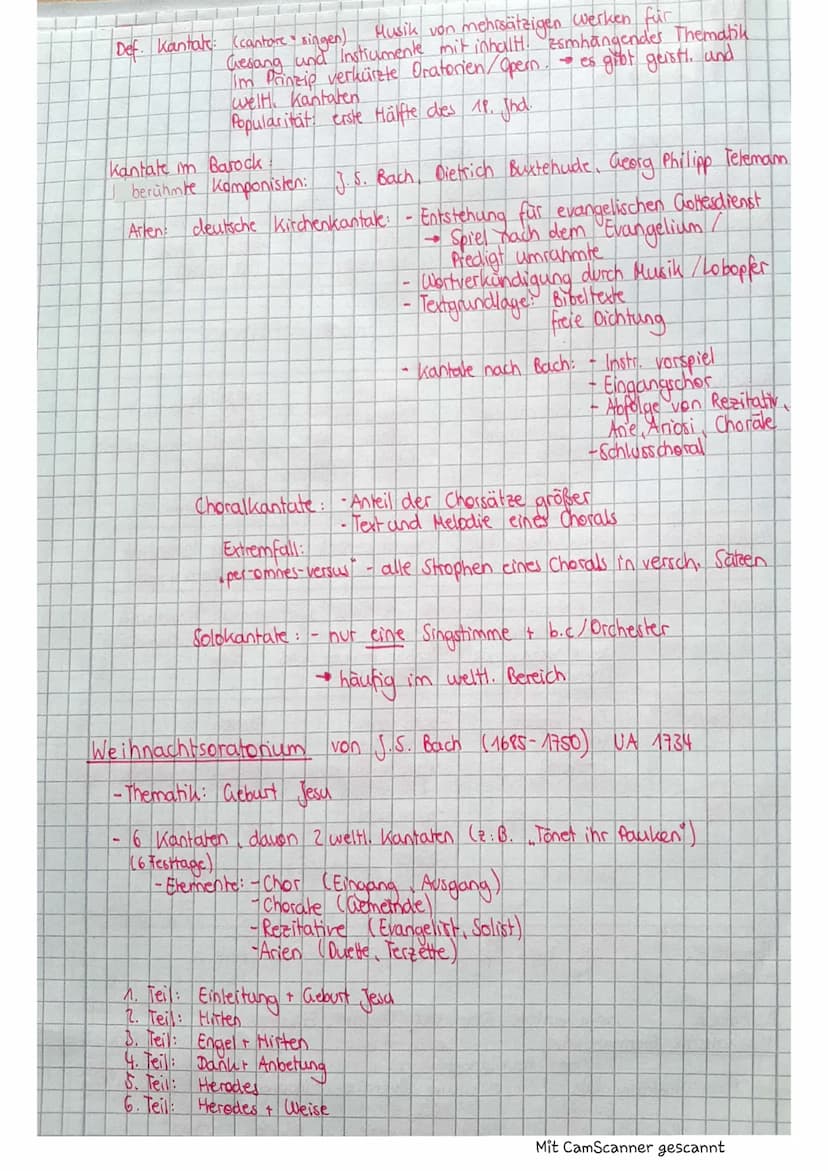 Def. Kantate: (cantare = singen) Musik von mehrsätzigen Werken für
Gesang und Instrumente mit inhaltl. zsmhängendes Thematik
Im Prinzip verkürzte Oratorien/Opern. → es gibt geistl. und
weltl. Kantaten
Popularität: erste Hälfte des 18. Jhd.
Kantate im Barock:
berühmte Komponisten: J.S. Bach, Dietrich Buxtehude, Georg Philipp Telemann
Arten: deutsche Kirchenkantate: - Entstehung für evangelischen Gottesdienst
→ Spiel nach dem Evangelium /
Predigt umrahmte
- Wortverkündigung durch Musik /Lobopfer
- Textgrundlage: Bibeltexte
freie Dichtung
- Kantate nach Bach: - Instr. vorspiel
- Eingangschor
- Abfolge von Rezitativ,
Arie, Ariosi, Choräle
- Schlusschoral
Choralkantate: - Anteil der Chorsätze größer
- Text und Melodie eines Chorals
Extremfall:
„per-omnes-versus" - alle Strophen eines Chorals in versch. Sätzen
Solokantate: - nur eine Singstimme + b.c/Orchester
→ häufig im weltl. Bereich
Weihnachtsoratorium von J.S. Bach (1685-1750) UA 1734
- Thematik: Geburt Jesu
- 6 Kantaten, davon 2 weltl. Kantaten (z.B. „Tönet ihr Pauken")
(6 Festtage)
- Elemente: - Chor (Eingang, Ausgang)
- Choräle (Gemeinde)
- Rezitative (Evangelist, Solist)
- Arien (Duette, Terzette)
1. Teil: Einleitung + Geburt Jesu
2. Teil: Hirten
3. Teil: Engel + Hirten
4. Teil: Dank + Anbetung
5. Teil: Herodes
6. Teil: Herodes + Weise
Mit CamScanner gescannt